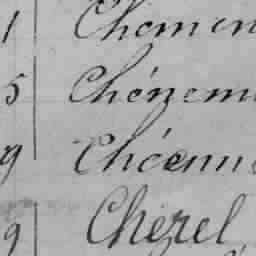 1 Chemin
5 Chénem
9 Chéenn
9 Cherel